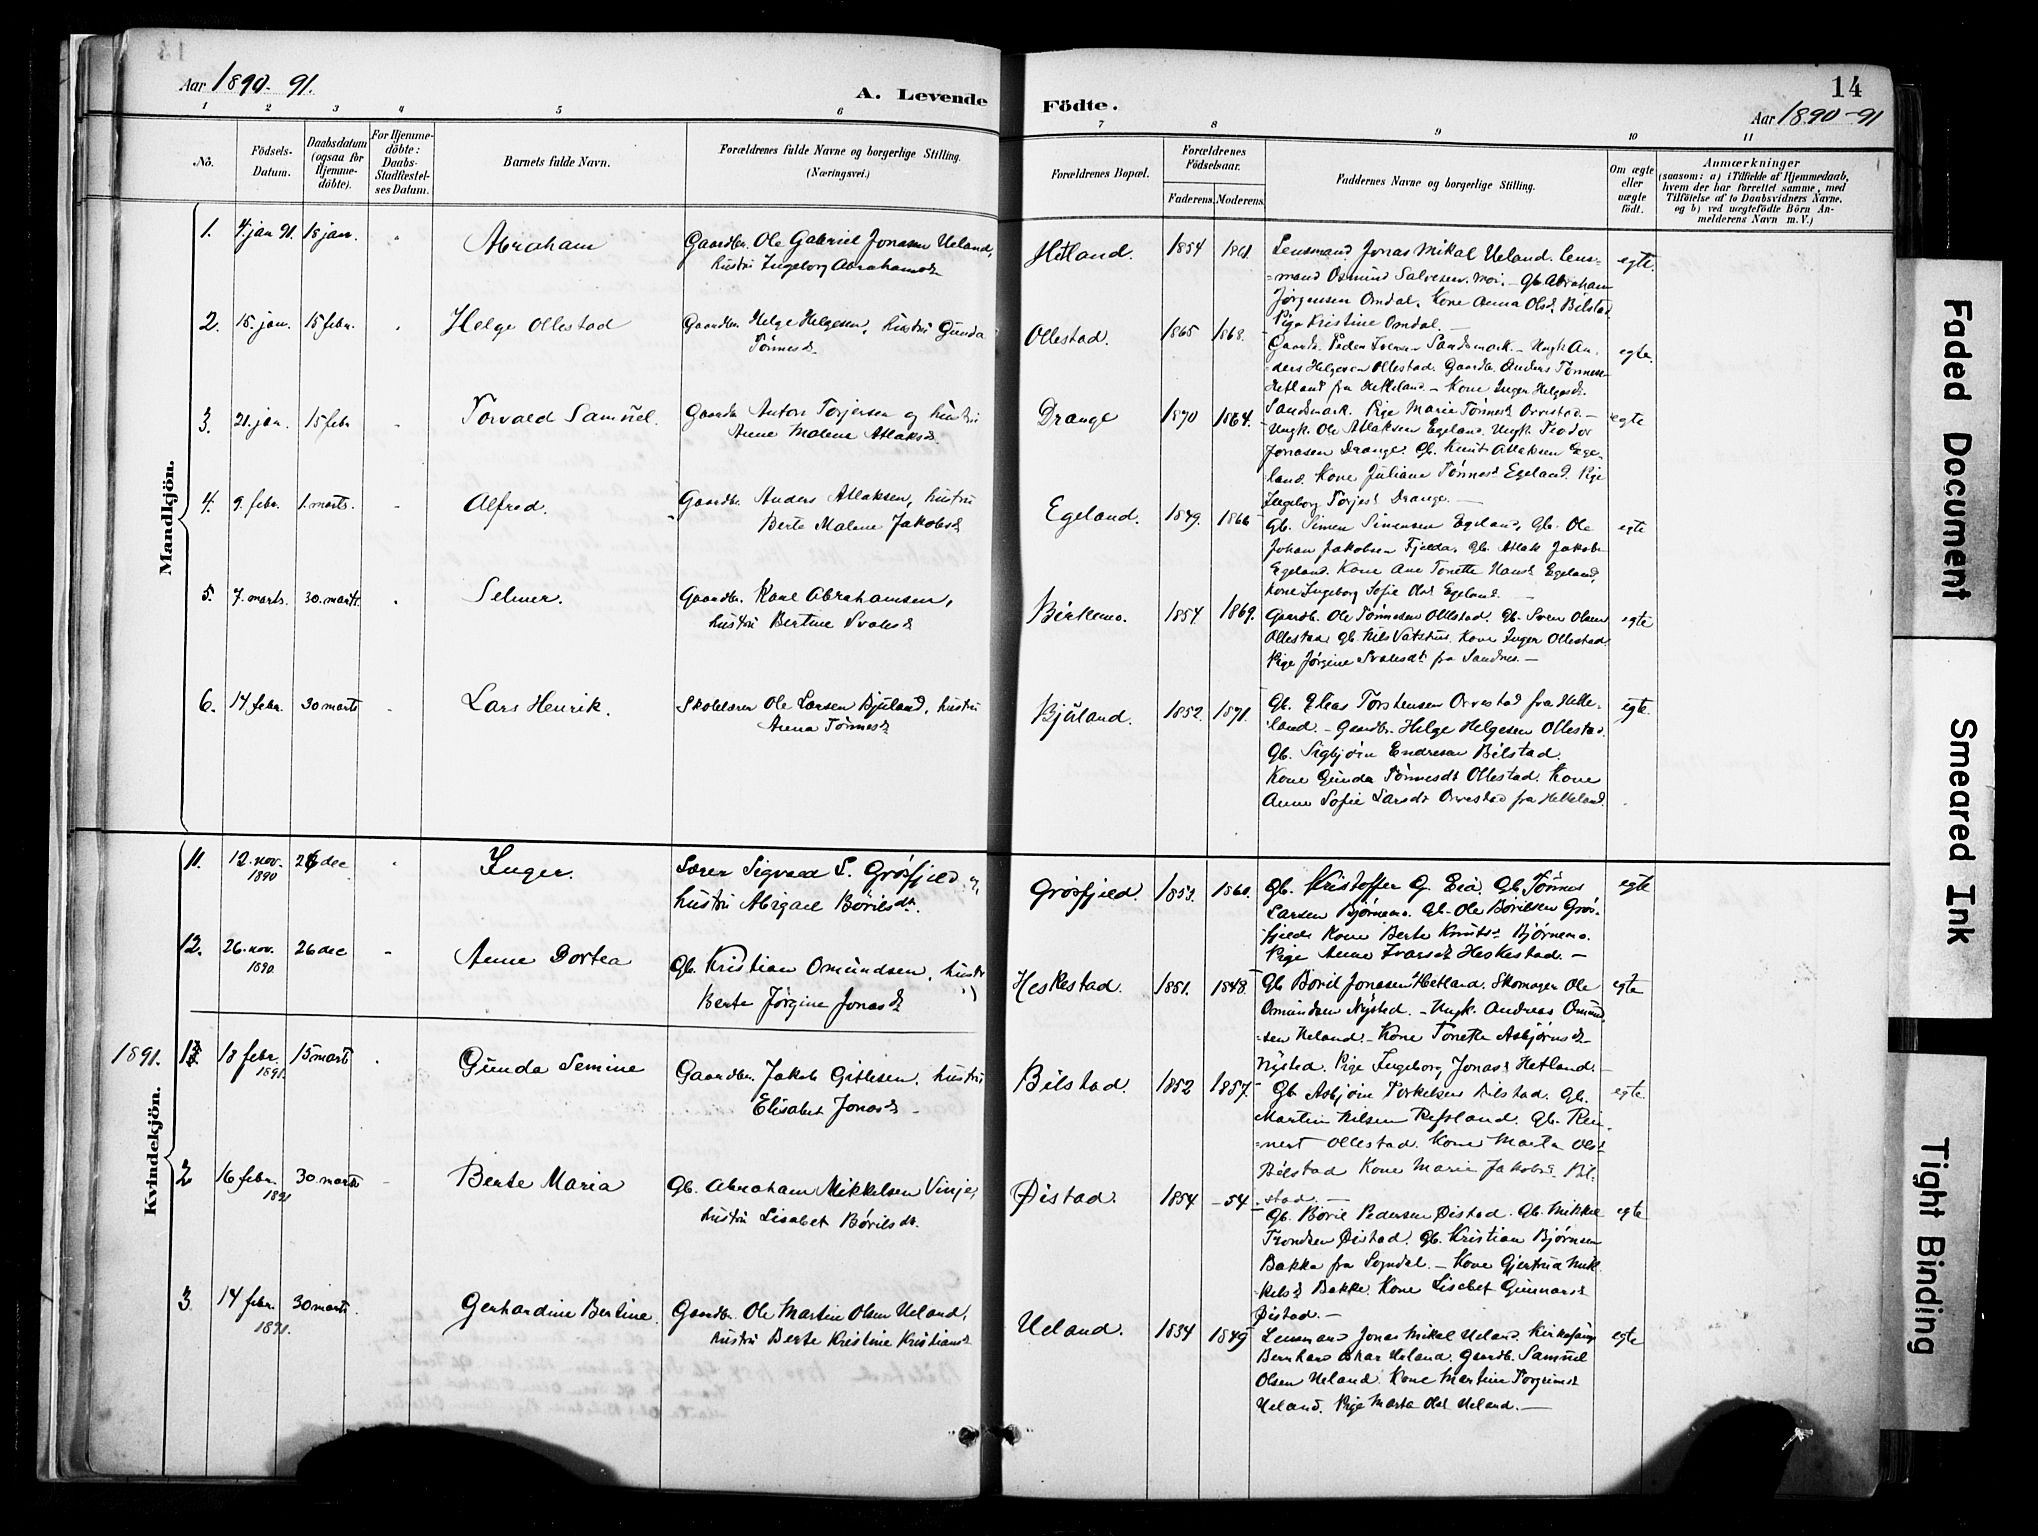 Aar 1890-91.
A. Levende
Födte.
14
Aar 1890-91
1 2 3 4 5 6 7 8 9 10 11
No.
Födsels-
Datum.
Daabsdatum
(ogsaa for
Hjemme-
döbte).
For Hjemme-
döbte:
Daabs-
Stadfæstel-
ses Datum.
Barnets fulde Navn.
Forældrenes fulde Navne og borgerlige Stilling.
(Næringsvei.)
Forældrenes Bopæl.
Forældrenes
Födselsaar.
Faderens. Moderens.
Faddernes Navne og borgerlige Stilling.
Om ægte
eller
uægte
født.
Anmærkninger
(saasom: a) i Tilfælde af Hjemmedaab,
hvem der har forrettet samme, med
Tilföielse af to Daabsvidners Navne.
og b) ved uægtefödte Börn An-
melderens Navn m. V.)
Mandkjön.
1. 4. jan 91. 18 jan. Abraham
Gaardbr. Ole Gabriel Jonasen Ueland,
hustru Ingeborg Abrahamsd.
Hetland. 1854 1861
Lensmand Jonas Mikal Ueland. Lens-
=mand Osmund Salvesen. Moi. - Gb. Abraham
Jörgensen Omdal. Kone Anna Olsd. Bilstad
Pige Kristine Omdal. -
egte.
2. 15. jan. 15 febr. Helge Ollestad
Gaardbr. Helge Helgesen, hustru Gunda
Tönnesd.
Ollestad. 1865 1868.
Gaardb. Peder Iversen Sandsmark. - Ungk. An-
ders Helgesen Ollestad. Gaardb. Anders Tönnes-
Hetland fra Helleland - Kone Inger Helgesd.
Sandsmark. Pige Marie Tönnesd. Orrestad. -
egte.
3. 21. jan. 15 febr Torvald Samuel.
Gaardb. Anton Torjersen og hustru
Anne Malene Atlaksd.
Drange 1870 1864.
Ungk. Ole Atlaksen Egeland. Ungk. Teodor
Jonasen Drange. Gb. Knut Atlaksen Ege-
land. Kone Juliane Tönnesd Egeland. Pige
Ingeborg Torjesd Drange. -
egte
4. 9. febr. 1. marts. Alfred.
Gaardbr. Anders Atlaksen, hustru
Berte Malene Jakobsd
Egeland. 1849. 1866
Gb. Simen Simensen Egeland, Gb. Ole
Johan Jakobsen Fjelda. Gb. Atlak Jakobs-
Egeland. Kone Ane Tonette Hansd Egeland,
Kone Ingeborg Sofie Olsd Egeland. -
egte
5. 7. marts. 30. marts. Selmer.
Gaardbr. Karl Abrahamsen,
hustru Bertine Svalesd
Birkemo. 1854 1869.
Gaardb. Ole Tönnesen Ollestad. Gb. Sven Olsen
Ollestad Gb. Nils Vatshus. Kone Inger Ollestad
Pige Jörgine Svalesdt. fra Sandnes. -
egte
6. 14 febr. 30 marts Lars Henrik.
Skolelærer Ole Larsen Bjuland, hustru
Anna Tönnesd
Bjuland. 1852. 1871.
Gb. Elias Torstensen Orrestad fra Helle-
land. - Gaardbr. Helge Helgesen Ollestad.
Gb. Sigbjörn Endresen Bilstad.
Kone Gunda Tönnesdt Ollestad. Kone
Anne Sofie Larsdt Orrestad fra Helleland.
egte.
Kvindekjön.
11. 12. nov. 1890 26 dec Inger.
Lærer Sigvald S. Grösfjeld,
hustru Abigael Börilsdt.
Grösfjeld. 1853. 1860.
Gb. Kristoffer G. Eia. Gb. Tönnes
Larsen Bjørnemo. Gb. Ole Börilsen Grös-
fjeld. Kone Berte Knutsd. Bjørnemo.
Pige Anne Ivarsd Heskestad. -
egte
12. 26. nov. 1890. 26 dec Anne Dortea
Gb. Kristian Omundsen. hustr
Berte Jörgine Jonasd
Heskestad. 1851. 1848.
Gb Böril Jonasen Hetland. Skomager Ole
Omundsen Nysted. - Ungk. Andreas Omund-
=sen Ueland. - Kone Tonette Asbjörnsd -
Nysted. Pige Ingeborg Jonasd Hetland.
egte
1891. 1 18 febr. 1891. 15 marts Gunda Semine
Gaardbr. Jakob Gitlesen. hustru
Elisabet Jonasd -
Bilstad 1852 1857.
Gb. Asbjörn Torkelsen Bilstad. Gb.
Martin Nilsen Refsland. Gb. Rei-
=nert Ollestad. Kone Marta Olsd
Bilstad Kone Marie Jakobsd. Bil-
stad. -
egte
2 16 febr. 1891 30 marts Berte Maria
Gb. Abraham Mikkelsen Vinje,
hustru Lisabet Börilsdt.
Øistad. 1854 -54
Gb. Böril Pedersen Øistad. Gb. Mikkel
Trondsen Øistad. Gb. Kristian Bjørnsen
Bakka fra Sogndal. - Kone Gjertrud Mik-
kelsd Bakke. Kone Lisabet Gunnarsd
Øistad. -
egte
3. 14 febr. 1891. 30 marts. Gerhardine Bertine.
Gaardbr. Ole Martin Olsen Ueland,
hustru Berte Kristine Kristiansd
Ueland. 1834 1849
Lensmand Jonas Mikal Ueland. Kirkesanger
Bernhard Oskar Ueland. Gaardb. Samuel
Olsen Ueland. Kone Martine Torgrimsd
Ueland. Pige Marta Olsd Ueland. -
egte
Faded Document
Smeared Ink
Tight Binding